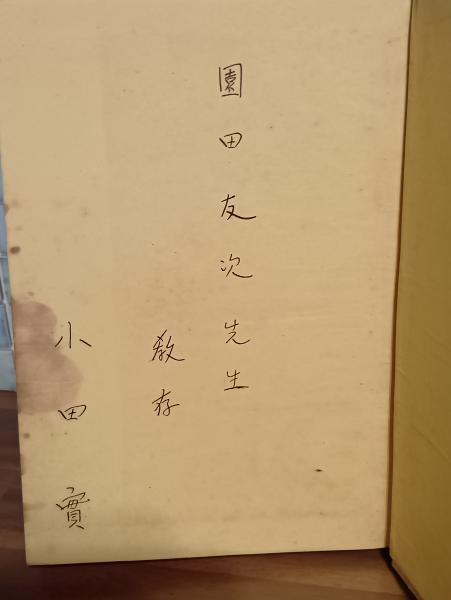 園田友次先生
敎存
小田實